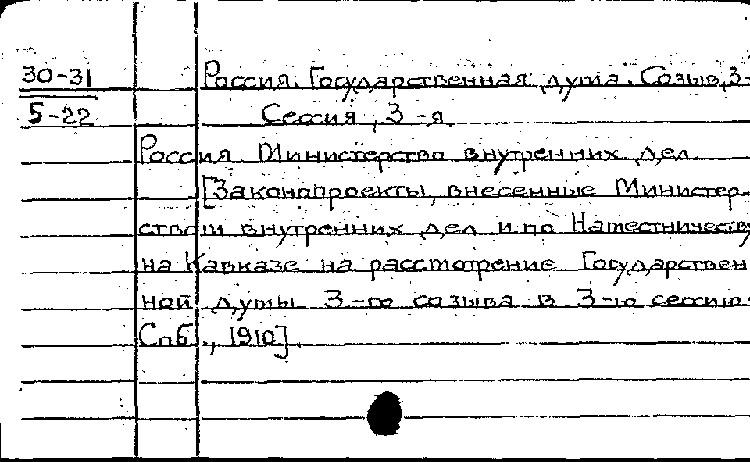 30-31 Россия. Государственная дума. Созыв, 3-
5-22 Сессия, 3-я.
Россия. Министерство внутренних дел.
[Законопроекты, внесенные Министер-
ством внутренних дел и по Наместничеству
на Кавказе на рассмотрение Государствен
ной думы 3-го созыва в 3-ю сессию.
Спб., 1910].